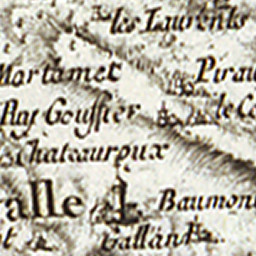 les Laurents
Mortamet Pirau
Puy Gouffier le Co
Chateauroux
alle Baumont
t Galland